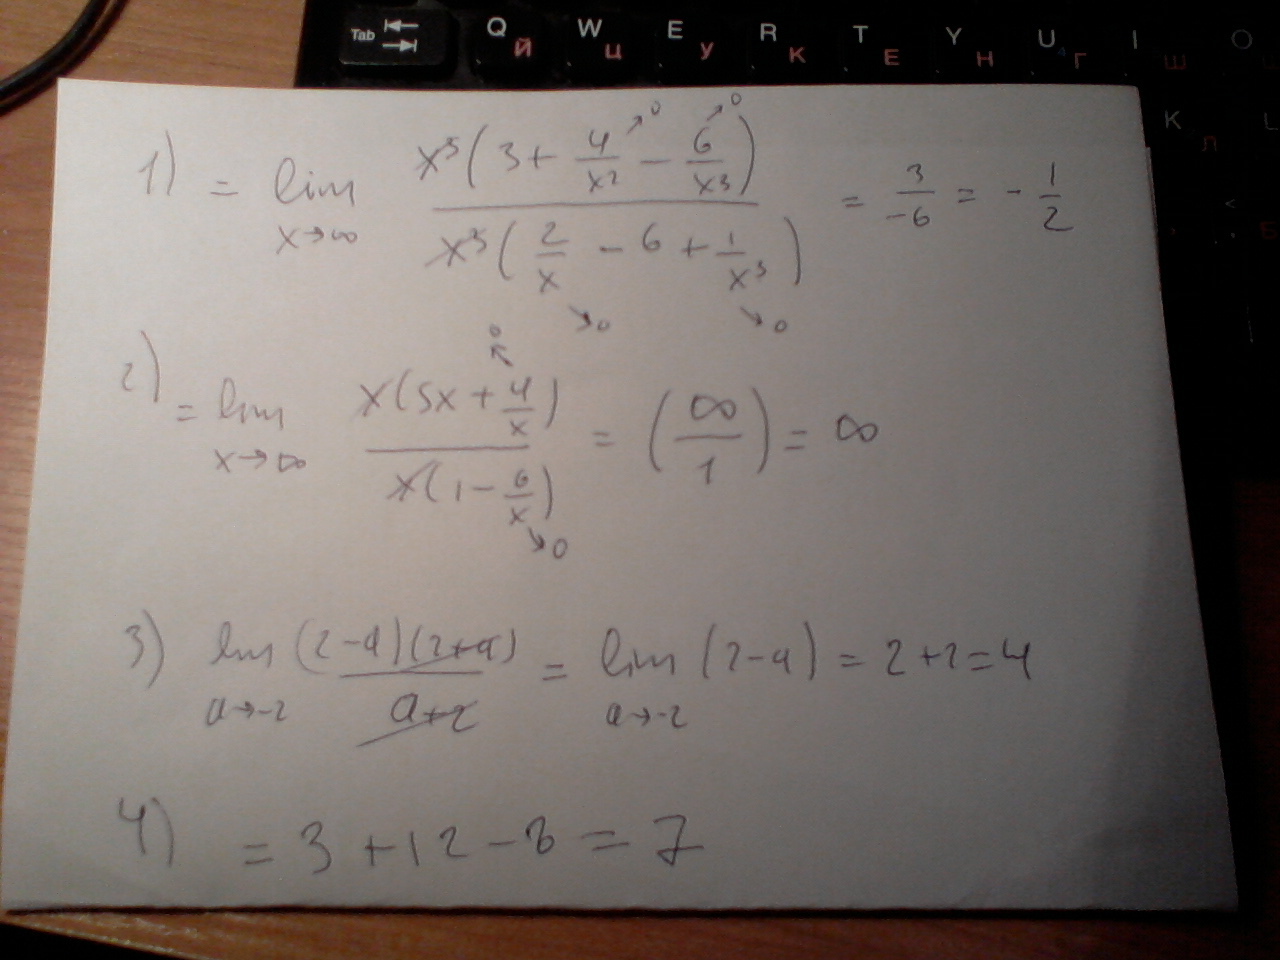 Tab Q Й W Ц E У R К T Е Y Н U Г I Ш O
K Л
1) = lim x→∞ x³(3 + 4/x² →0 − 6/x³ →0) / x³(2/x →0 − 6 + 1/x³ →0) = 3/−6 = −1/2
2) = lim x→∞ x(5x + 4/x →0) / x(1 − 6/x →0) = (∞/1) = ∞
3) lim a→−2 (2−a)(2+a) / a+2 = lim a→−2 (2−a) = 2+2=4
4) = 3 + 12 − 8 = 7